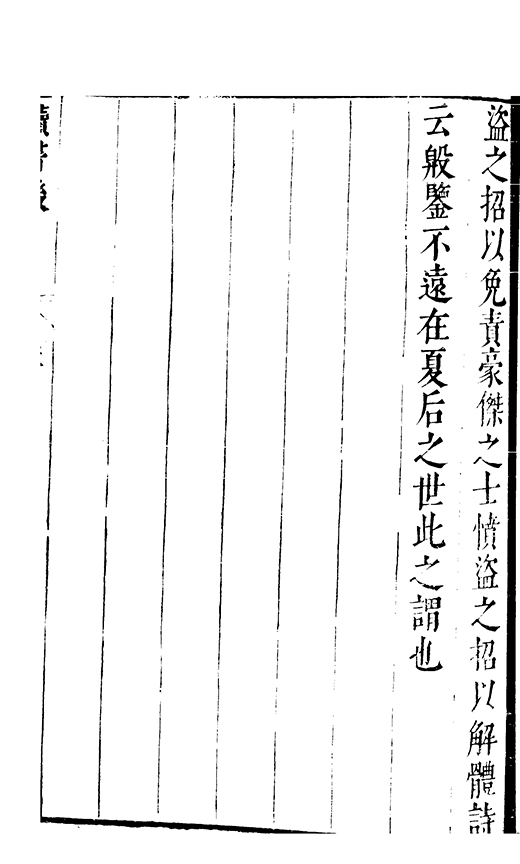 盜之招以免責豪傑之士憤盜之招以解體詩
云殷鑒不遠在夏后之世此之謂也
讀書後